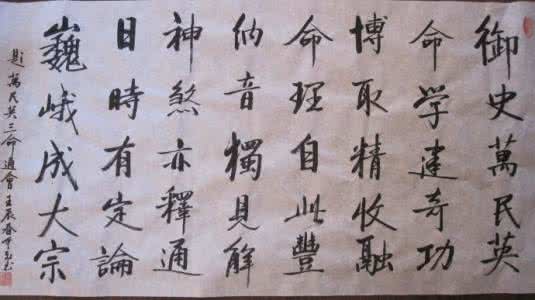 御史萬民英
命学建奇功
博取精收融
命理自此豐
納音獨見解
神煞亦釋通
日時有定論
巍峨成大宗
題萬民英三命通會 壬辰春